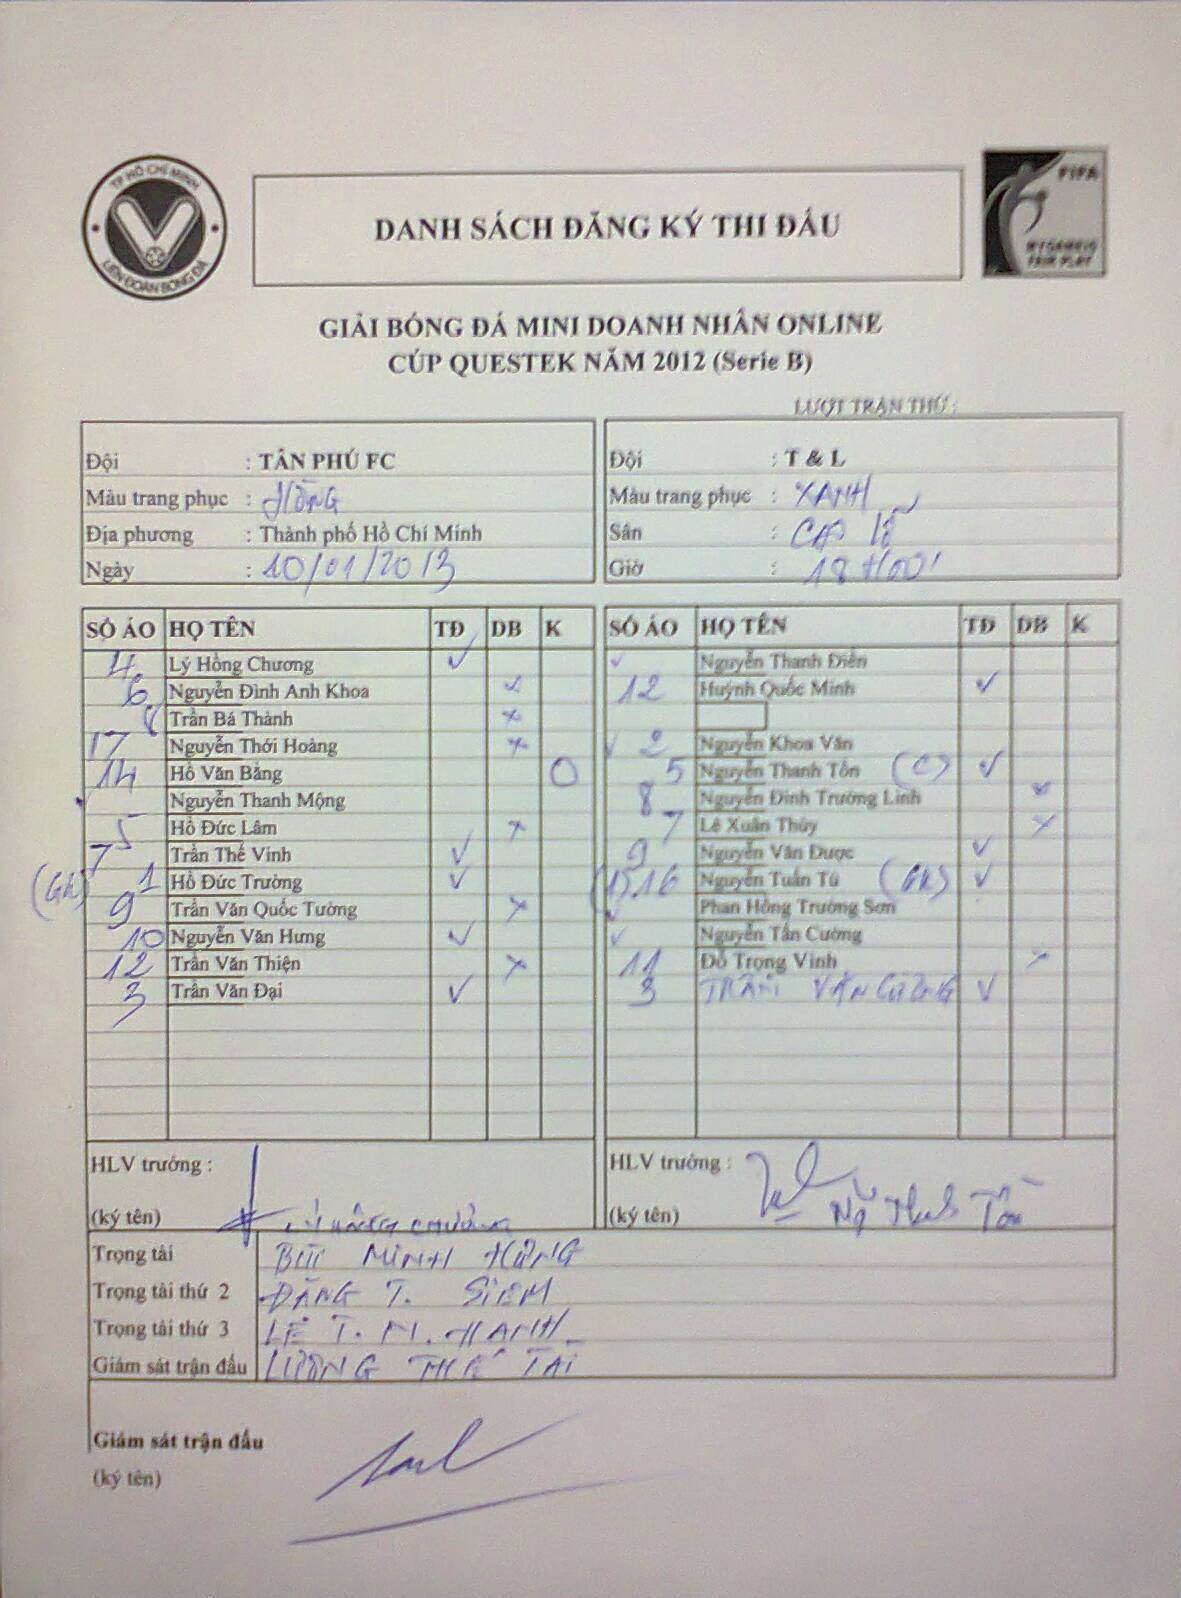 TP HỒ CHÍ MINH
LIÊN ĐOÀN BÓNG ĐÁ
DANH SÁCH ĐĂNG KÝ THI ĐẤU
FIFA
MY GAME IS
FAIR PLAY
GIẢI BÓNG ĐÁ MINI DOANH NHÂN ONLINE
CÚP QUESTEK NĂM 2012 (Serie B)
LƯỢT TRẬN THỨ :
Đội : TÂN PHÚ FC
Màu trang phục : HỒNG
Địa phương : Thành phố Hồ Chí Minh
Ngày : 10/01/2013
Đội : T & L
Màu trang phục : XANH
Sân : CAO LỖ
Giờ : 18H00'
SỐ ÁO HỌ TÊN TĐ DB K
4. Lý Hồng Chương ✓
6 Nguyễn Đình Anh Khoa ✓
8 Trần Bá Thành x
17 Nguyễn Thới Hoàng x
14 Hồ Văn Bằng O
Nguyễn Thanh Mộng
5 Hồ Đức Lâm x
7 Trần Thế Vinh ✓
(GK) 1 Hồ Đức Trường ✓
9 Trần Văn Quốc Tường x
10 Nguyễn Văn Hưng ✓
12 Trần Văn Thiện x
3 Trần Văn Đại ✓
SỐ ÁO HỌ TÊN TĐ DB K
✓ Nguyễn Thanh Điền
12 Huỳnh Quốc Minh ✓
✓ 2 Nguyễn Khoa Văn
5 Nguyễn Thanh Tồn (C) ✓
8 Nguyễn Đình Trường Linh x
7 Lê Xuân Thúy x
9 Nguyễn Văn Được ✓
(1) 16 Nguyễn Tuấn Tú (GK) ✓
✓ Phan Hồng Trường Sơn
✓ Nguyễn Tấn Cường
11 Đỗ Trọng Vinh x
3 TRẦN VĂN CƯỜNG ✓
HLV trưởng :
(ký tên) LÝ HỒNG CHƯƠNG
HLV trưởng :
(ký tên) Ng Thanh Tồn
Trọng tài BÙI MINH HÙNG
Trọng tài thứ 2 ĐẶNG T. SIEM
Trọng tài thứ 3 LÊ T. M. HẠNH
Giám sát trận đấu LƯƠNG THẾ TÀI
Giám sát trận đấu
(ký tên)